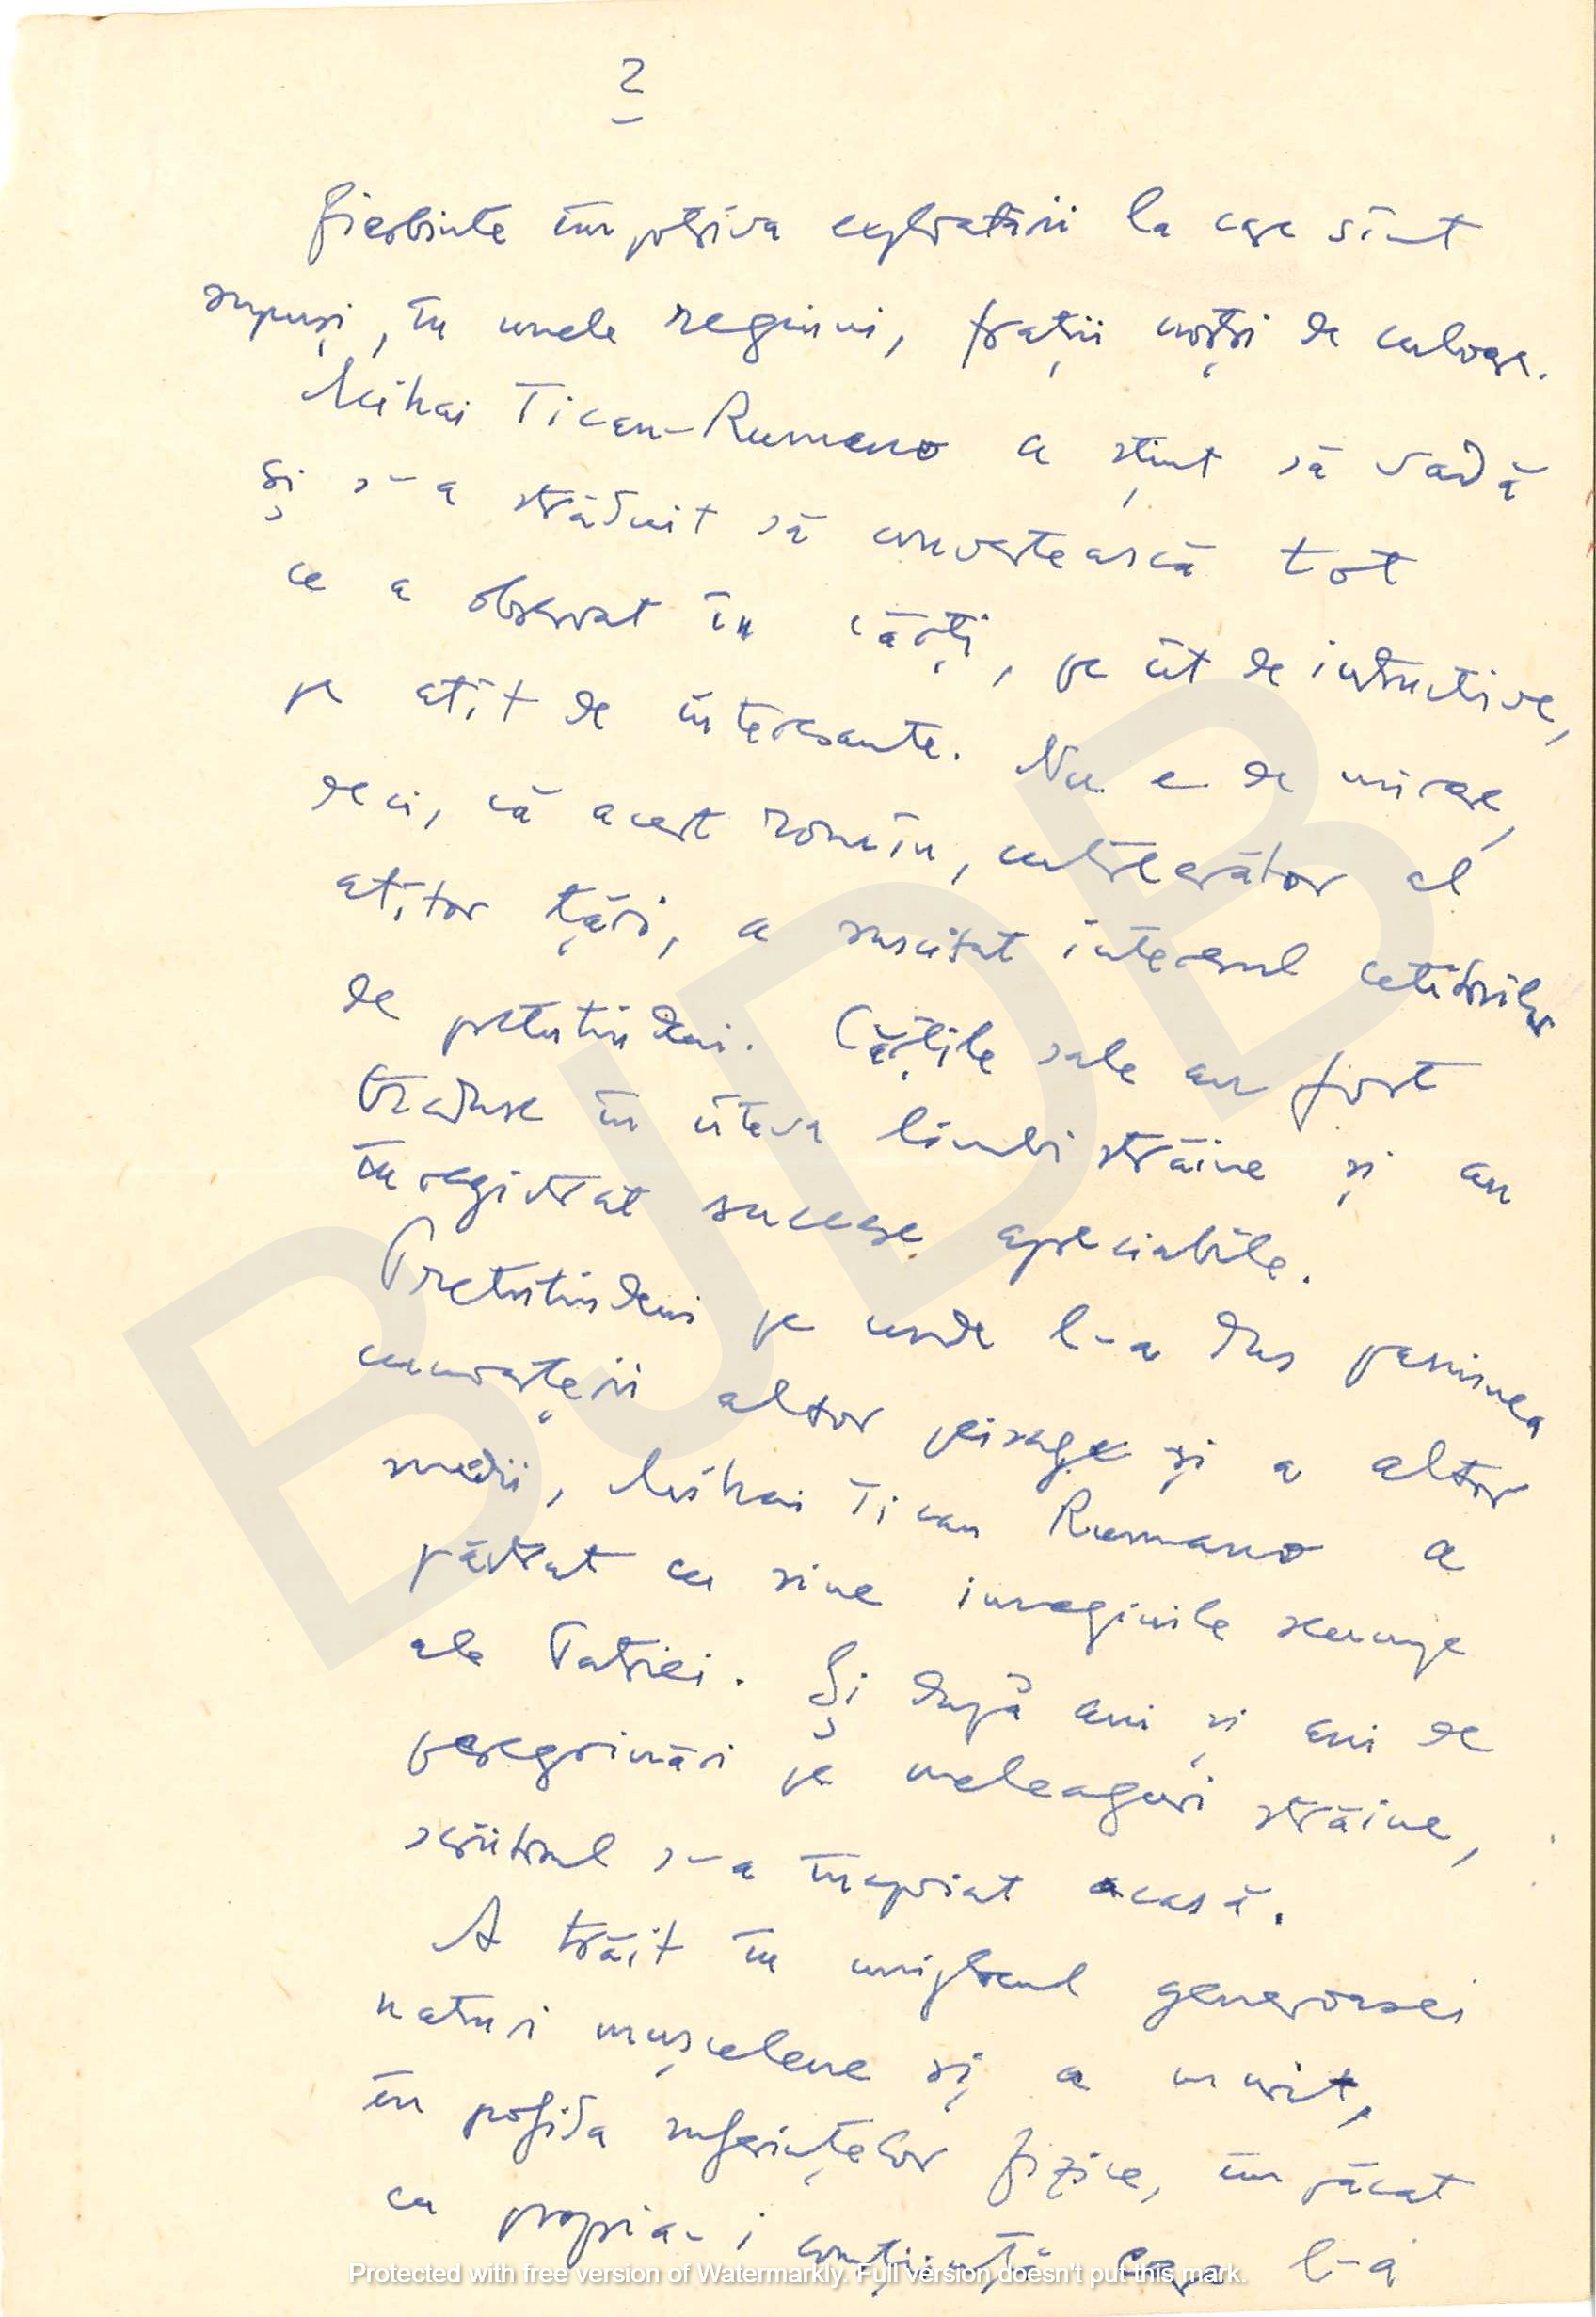 2
fierbinte împotriva exploatării la care sînt
supuși, în unele regiuni, frații noștri de culoare.
Mihai Tican-Rumano a știut să vadă
și s-a străduit să convertească tot
ce a observat în cărți, pe cît de instructive,
pe atît de interesante. Nu e de mirare,
deci, că acest român, cutreierător al
atîtor țări, a suscitat interesul cetitorilor
de pretutindeni. Cărțile sale au fost
traduse în cîteva limbi străine și au
înregistrat succese apreciabile.
Pretutindeni pe unde l-a dus pasiunea
cunoașterii altor peisage și a altor
medii, Mihai Tican Rumano a
păstrat cu sine imaginile scumpe
ale Patriei. Și după ani și ani de
peregrinări pe meleaguri străine,
scriitorul s-a înapoiat acasă.
A trăit în mijlocul generoasei
naturi muscelene și a murit,
în pofida suferințelor fizice, împăcat
cu propria-i conștiință care l-a
Protected with free version of Watermarkly. Full version doesn't put this mark.
BJDB